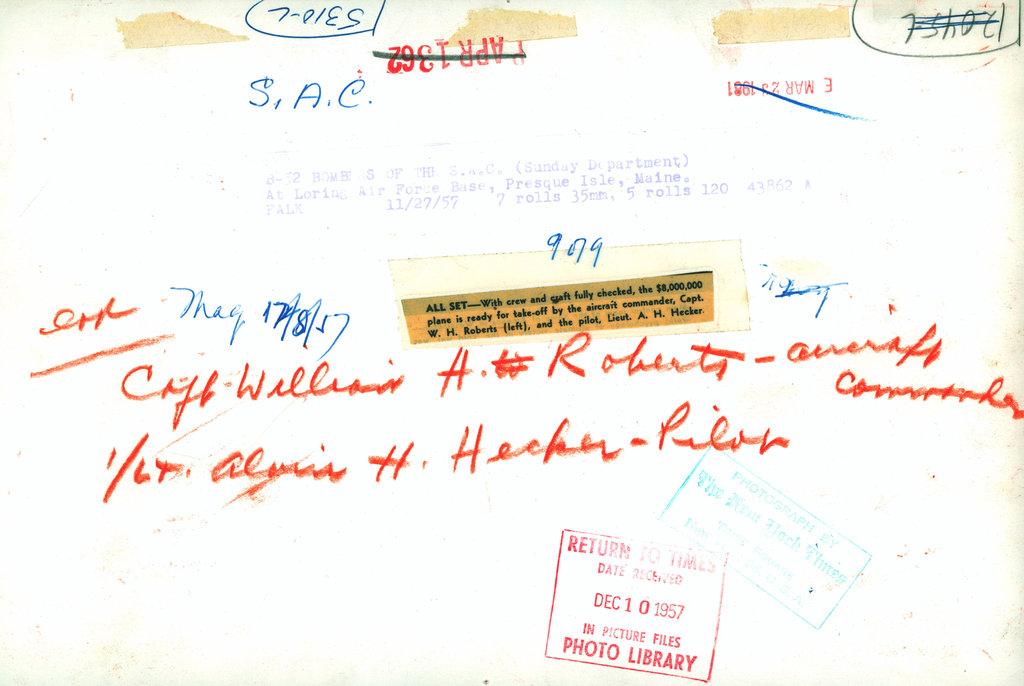 5310-C
APR 1 362
E MAR 23 1981
S.A.C.
B-52 BOMBERS OF THE S.A.C. (Sunday Department)
At Loring Air Force Base, Presque Isle, Maine.
FALK 11/27/57 7 rolls 35mm, 5 rolls 120 43862 A
9079
ALL SET—With crew and craft fully checked, the $8,000,000
plane is ready for take-off by the aircraft commander, Capt.
W. H. Roberts (left), and the pilot, Lieut. A. H. Hecker.
Mag 12/8/57
Capt. William H. Roberts - aircraft
commander
1/Lt. Alvin H. Hecker - Pilot
PHOTOGRAPH BY
The New York Times
RETURN TO TIMES
DATE RECEIVED
DEC 10 1957
IN PICTURE FILES
PHOTO LIBRARY